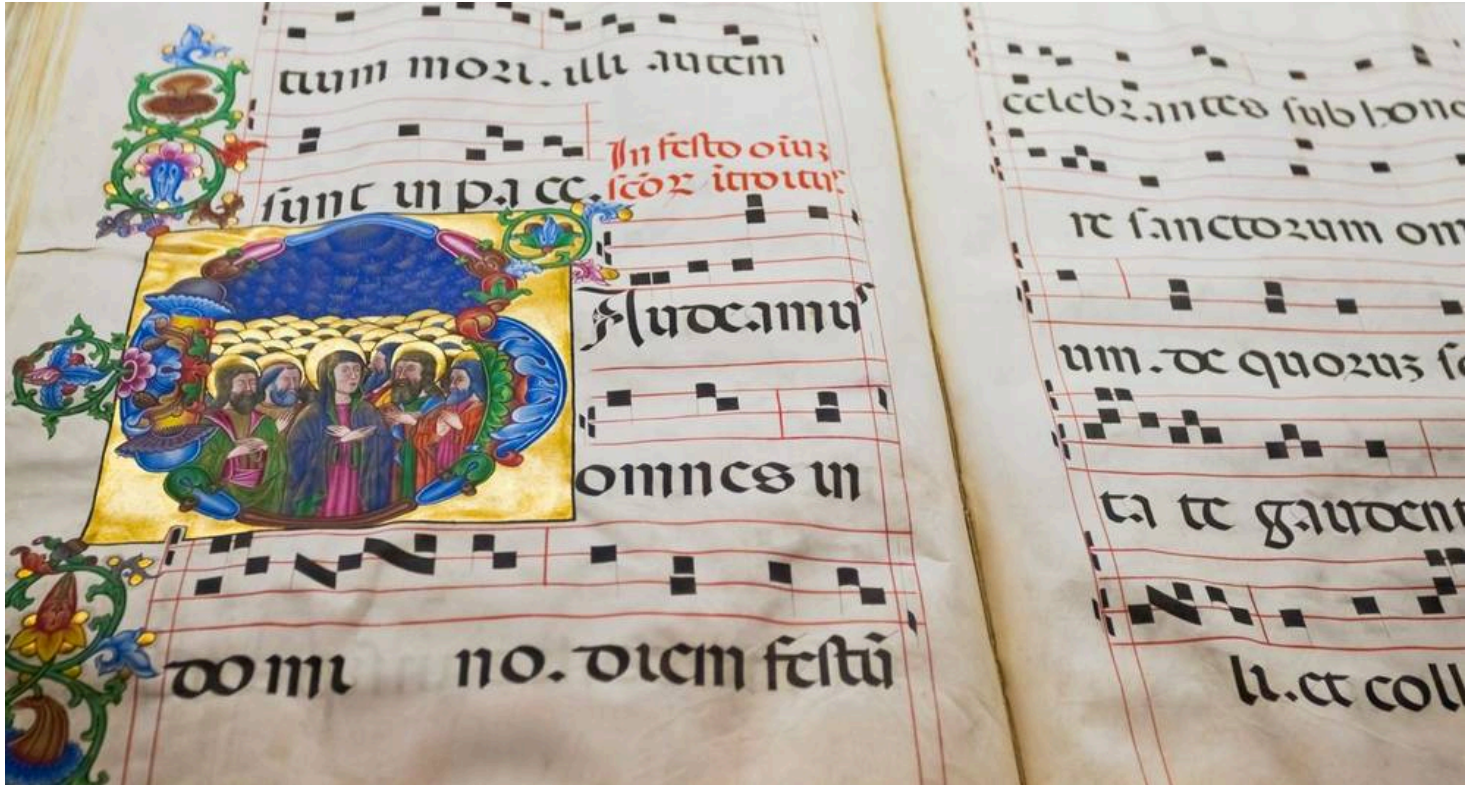 tium mori. illi autem
sunt in pa ce.
In festo oīuʒ
scōꝝ ītroitus
Audeamus
omnes in
domi no. diem festū
celebrantes sub hono
re sanctorum om
um. de quoruʒ so
ta te gaudent
li. et coll